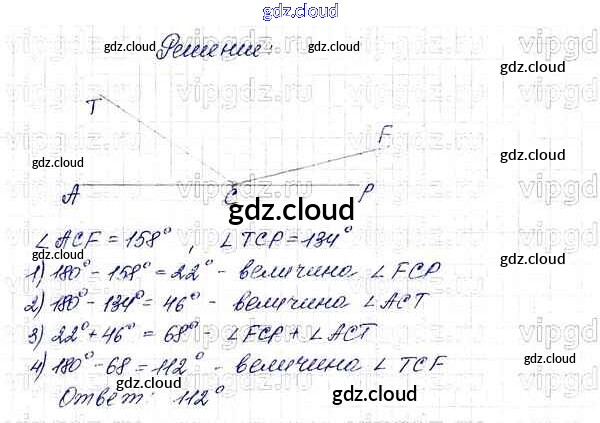 gdz.cloud
Решение:
gdz.cloud gdz.cloud
gdz.cloud
T
gdz.cloud gdz.cloud
F
gdz.cloud gdz.cloud
A C P
gdz.cloud
gdz.cloud
∠ACF = 158°, ∠TCP = 134°
1) 180° - 158° = 22° - величина ∠FCP
2) 180° - 134° = 46° - величина ∠ACT
3) 22° + 46° = 68° - ∠FCP + ∠ACT
4) 180° - 68 = 112° - величина ∠TCF
Ответ: 112°
gdz.cloud
gdz.cloud